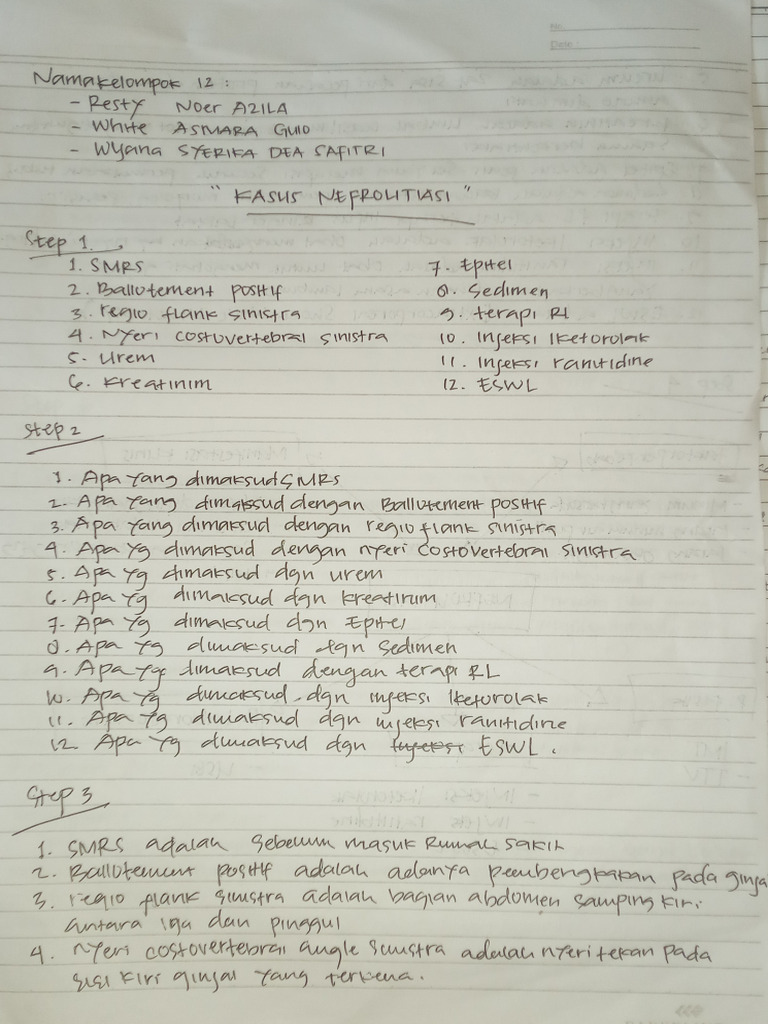 No:
Date:
Nama kelompok 12 :
- Resty Noer AZILA
- White ASMARA GUIO
- Wyana SYERIKA DEA SAFITRI
" KASUS NEFROLITIASI "
Step 1.
1. SMRS
2. Ballotement positif
3. regio flank sinistra
4. Nyeri costovertebral sinistra
5. Urem
6. Kreatinim
7. Epitel
8. Sedimen
9. terapi RL
10. Injeksi Ketorolak
11. Injeksi ranitidine
12. ESWL
Step 2
1. Apa yang dimaksud SMRS
2. Apa yang dimaksud dengan Ballotement positif
3. Apa yang dimaksud dengan regio flank sinistra
4. Apa yg dimaksud dengan nyeri costovertebral sinistra
5. Apa yg dimaksud dgn urem
6. Apa yg dimaksud dgn kreatinum
7. Apa yg dimaksud dgn Epitel
8. Apa yg dimaksud dgn Sedimen
9. Apa yg dimaksud dengan terapi RL
10. Apa yg dimaksud dgn injeksi Ketorolak
11. Apa yg dimaksud dgn injeksi ranitidine
12. Apa yg dimaksud dgn injeksi ESWL.
Step 3
1. SMRS adalah Sebelum masuk Rumah sakit
2. Ballotement positif adalah adanya pembengkakan pada ginja
3. regio flank sinistra adalah bagian abdomen samping kiri
antara iga dan pinggul
4. Nyeri costovertebral angle sinistra adalah nyeri tekan pada
sisi kiri ginjal yang terkena.